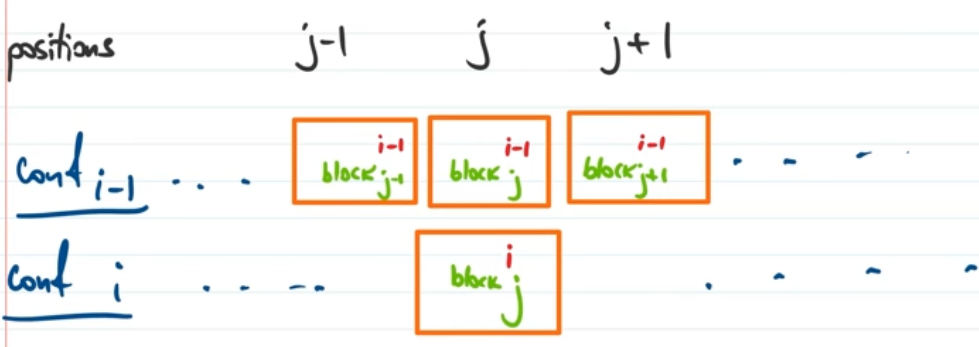 positions j-1 j j+1
conf i-1 . . . block j-1 i-1 block j i-1 block j+1 i-1 . . .
conf i . . . . block j i . . . .